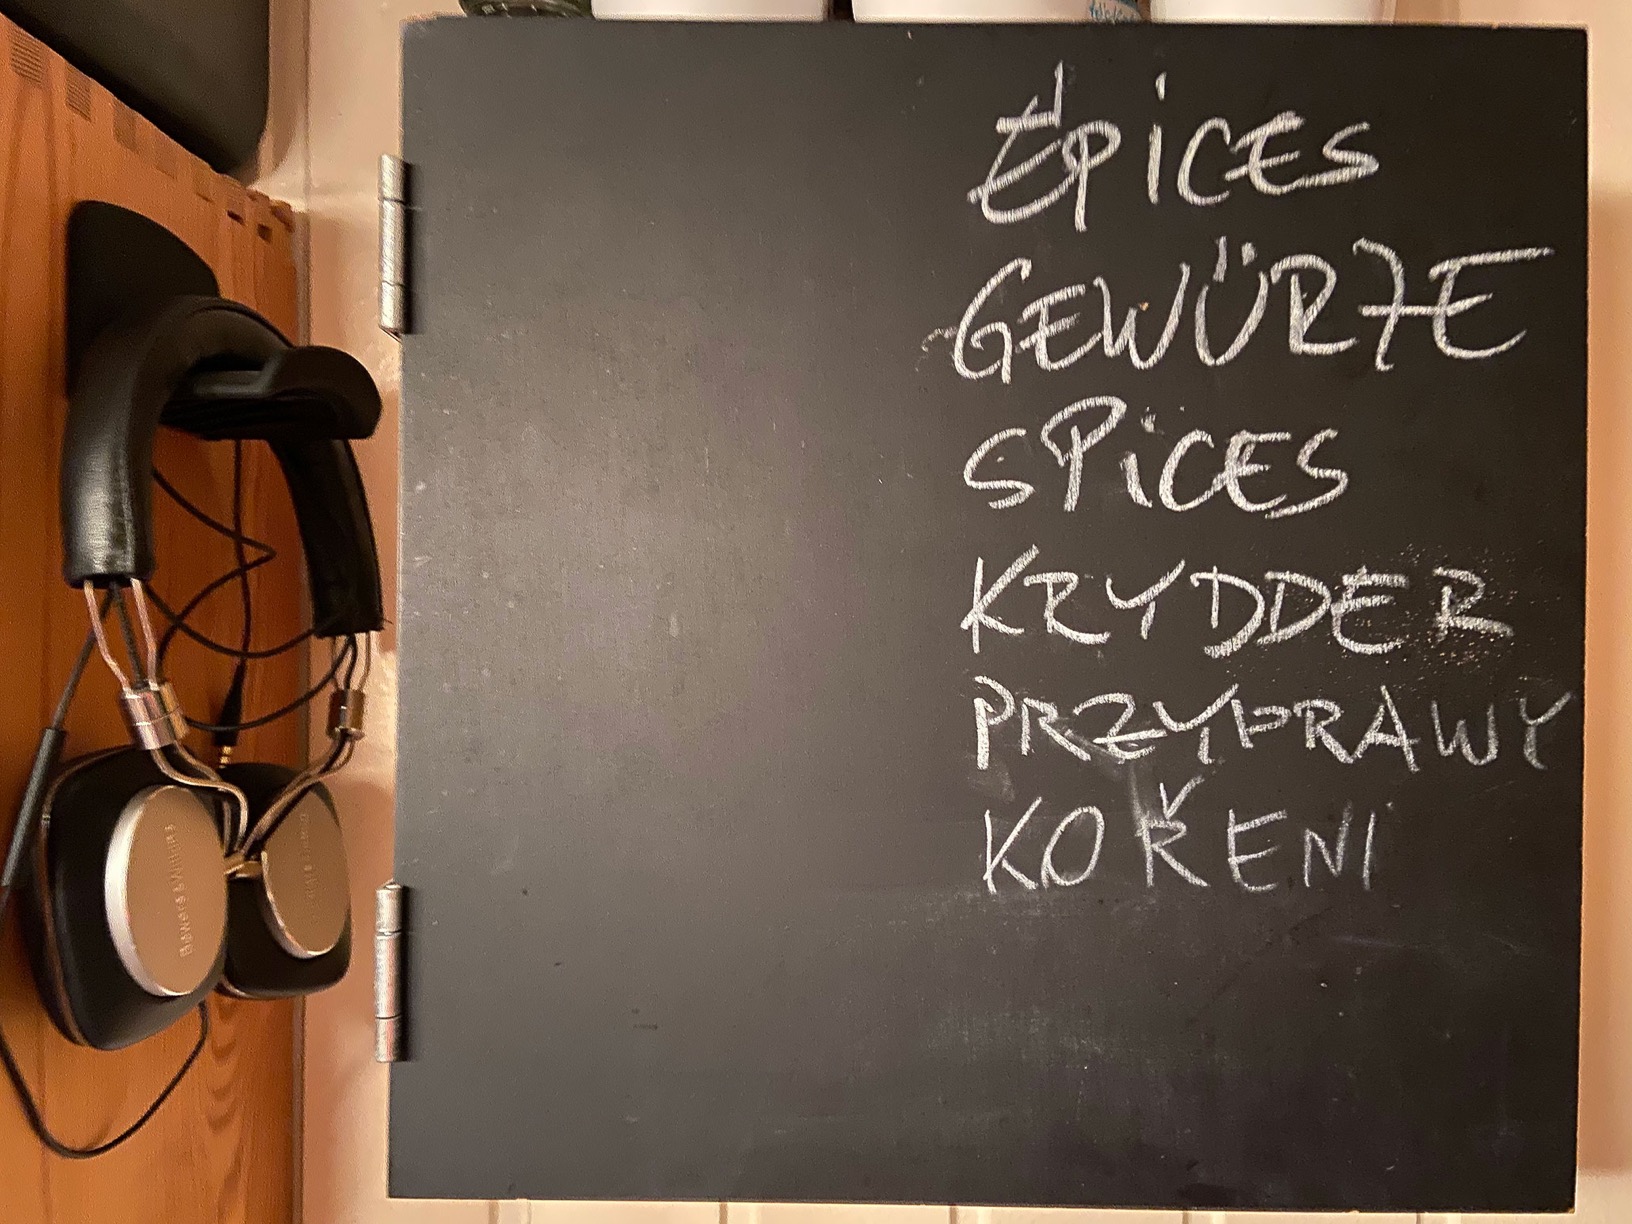 ÉPICES
GEWÜRZE
SPICES
KRYDDER
PRZYPRAWY
KOŘENI
Bowers & Wilkins